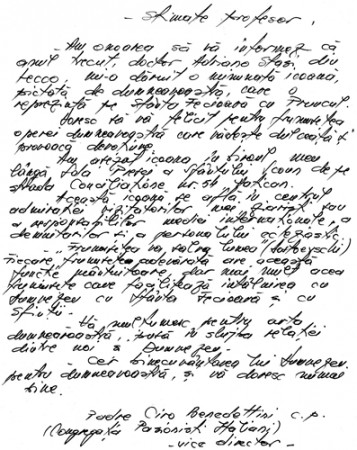 - Stimate profesor,
- Am onoarea să vă informez că
anul trecut, doctor Adriano Stasi din
Lecco, mi-a dăruit o minunată icoană,
pictată de dumneavoastră, care o
reprezintă pe Sfânta Fecioară cu Pruncul.
Doresc să vă felicit pentru frumusețea
operei dumneavoastră care
provoacă devoțiune.
Am așezat icoana în biroul meu
lângă Sala Presei a Sfântului Scaun de pe
strada Conciliazione nr. 54 Vatican.
Această icoană se află în centrul
admirației vizitatorilor mei, ziariști sau
a responsabililor media internaționale, a
demnitarilor și a personalului ecleziastic.
"Frumusețea va salva lumea" (Dostoyevschi)
Fiecare frumusețe adevărată are această
funcție mântuitoare, dar mai mult acea
frumusețe care facilitează întâlnirea cu
Dumnezeu cu Sfânta Fecioară și cu
Sfinții.
Vă mulțumesc pentru arta
dumneavoastră, pusă în slujba relației
dintre noi și Dumnezeu.
Cer binecuvântarea lui Dumnezeu
pentru dumneavoastră, și vă doresc numai
bine.
Padre Ciro Benedettini c.p.
(Congregația Pasioniști Italiani)
- vice director -